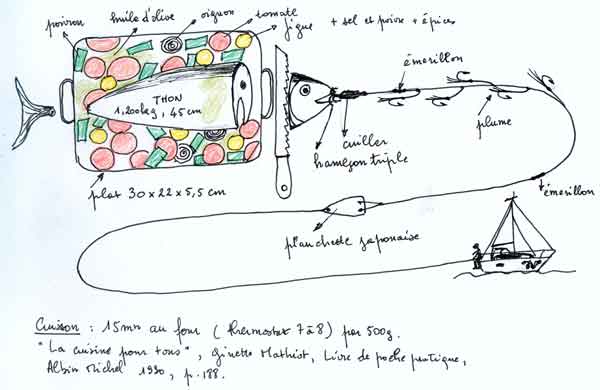 poivron huile d'olive oignon tomate figue + sel et poivre + épices
THON
1,200kg, 45cm
émerillon
cuiller
hameçon triple
plume
émerillon
plat 30 x 22 x 5,5 cm
planchette japonaise
Cuisson : 15mn au four (thermostat 7 à 8) par 500g.
"La cuisine pour tous", Ginette Mathiot, Livre de poche pratique,
Albin Michel 1990, p.188.